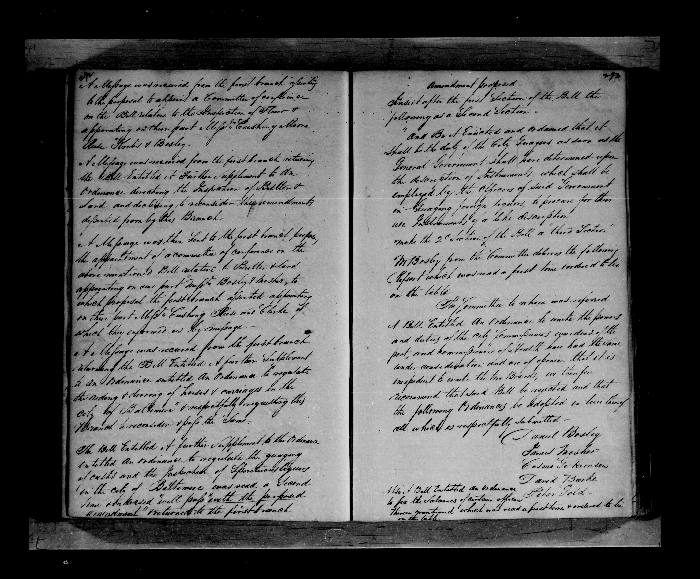 A Message was received from the first branch assenting
to the proposal to appoint a Committee of conference
on the Bill relative to the Inspection of Flour &
appointing on their part Messrs Cushing Moore
Hose & Bosley.
A Message was received from the first branch returning
the Bill Entitled A Further Supplement to An
Ordinance directing the Inspection of Butter &
Lard and declining to reconsider the amendments
dissented from by this Branch.
A Message was then Sent to the first branch proposing
the appointment of a committee of conference on the
above mentioned Bill relative to Butter & Lard
appointing on our part Messrs Bosley & Mosher, to
which proposal the first branch assented appointing
on their part Messrs Cushing Hose and Clarke of
which they informed us by message.
A Message was received from the first branch
returning the Bill Entitled A further Supplement
to An Ordinance entitled An Ordinance to regulate
the riding & driving of horses & carriages in the
City of Baltimore & respectfully requesting this
Branch to reconsider & pass the Same.
The Bill Entitled A further Supplement to the Ordinance
entitled An ordinance to regulate the gauging
of casks and the Inspection of Spirituous liquors
in the City of Baltimore was read a Second
time & endorsed will pass with the proposed
amendment & returned to the first branch
292
Amendment proposed
Insert after the first Section of the Bill the
following as a Second Section.
"And Be it Enacted and ordained that it
shall be the duty of the City Gaugers as soon as the
General Government shall have determined upon
the description of Instruments, which shall be
employed by the officers of said Government
in Gauging foreign liquors, to procure for their
use Instruments of a like description"
make the 2d Section of the Bill a third Section
Mr Bosley from the Committee delivers the following
Report which was read a first time & ordered to lie
on the table
The Committee to whom was referred
A Bill Entitled An Ordinance to unite the powers
and duties of the City Commissioners & wardens of the
port, and commissioners of health have had the same
under consideration and are of opinion that it is
inexpedient to unite the two Boards, we therefore
recommend that said Bill be rejected and that
the following Ordinances be adopted in lieu thereof
all which is respectfully submitted
Daniel Bosley
James Mosher
David Burke
Peter Gold
Also A Bill Entitled An ordinance
to fix the Salaries of certain officers
therein mentioned which was read a first time & ordered to lie
on the table